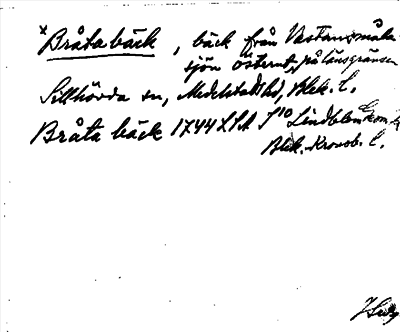 x Bråtabäck, bäck från Västersmåla-
sjön österut, på länsgränsen
Sillhövda sn, Medelstads hd, Blek. l.
Bråta bäck 1744 LSA I 10 Lindblom
Blek. Kronob. l.